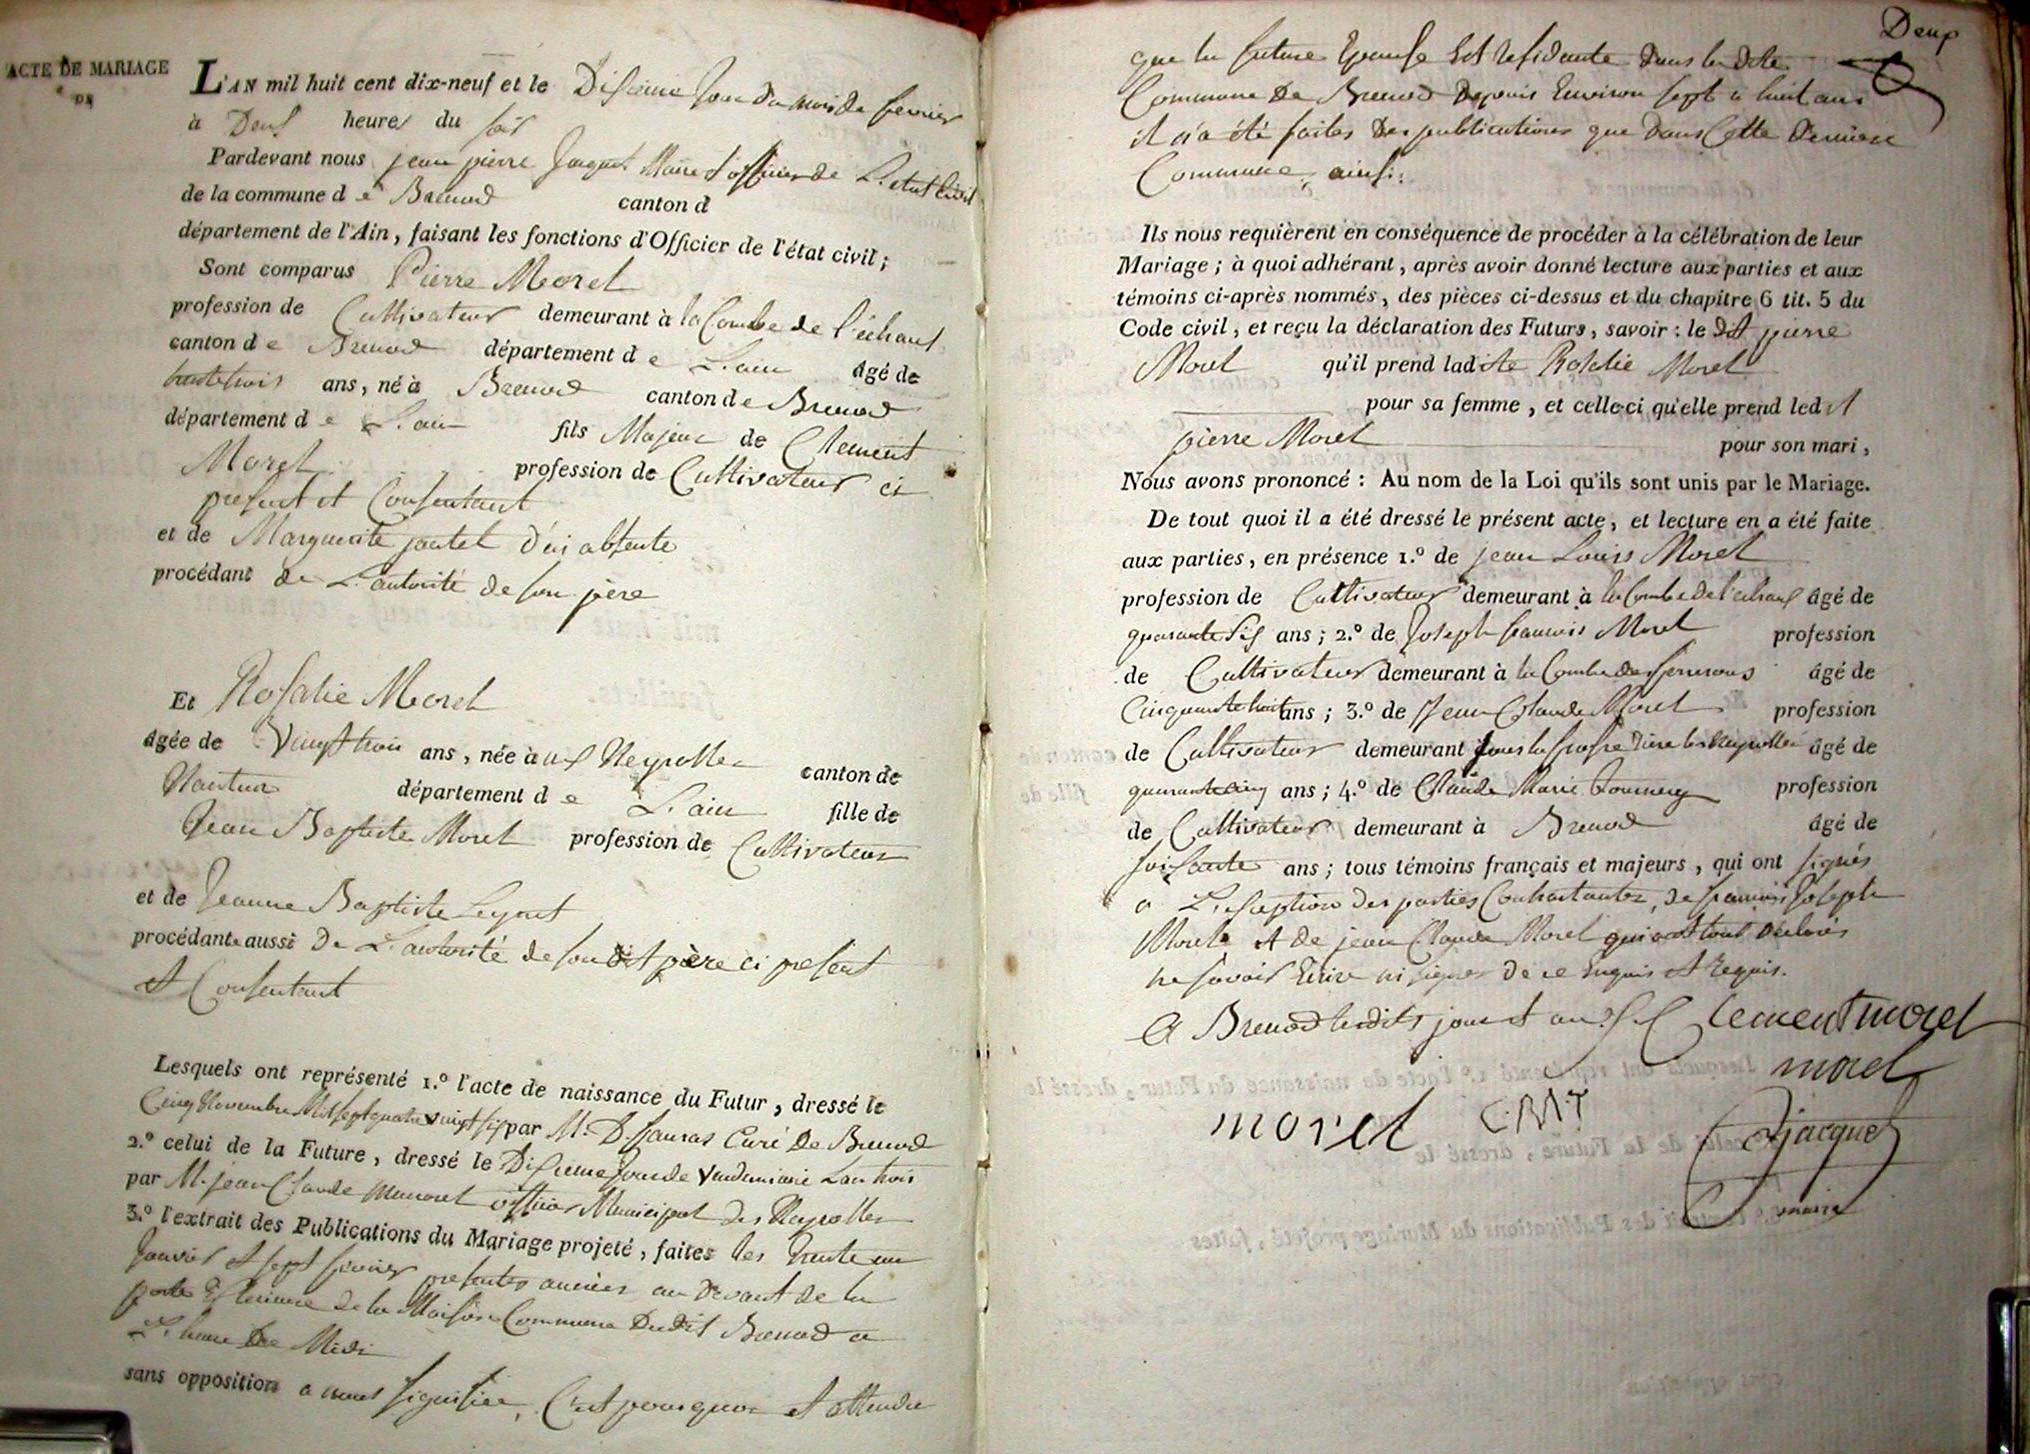 ACTE DE MARIAGE
DE
L'AN mil huit cent dix-neuf et le Disieme Jour du mois de fevrier
à Deux heures du soir
Pardevant nous jean pierre Jaquet Maire et officier de L'etat Civil
de la commune de Brenod canton d
département de l'Ain, faisant les fonctions d'Officier de l'état civil;
Sont comparus Pierre Morel
profession de Cultivateur demeurant à la Combe de l'échaux
canton de Brenod département de L'ain âgé de
trente trois ans, né à Brenod canton de Brenod
département de L'ain fils Majeur de Clement
Morel profession de Cultivateur ci
present et Consentant
et de Marguerite joutel d'ici absente
procédant de L'autorité de son père
Et Rosalie Morel
âgée de Vingt trois ans, née à ux Neyrolles canton de
Nantua département de L'ain fille de
Jean Baptiste Morel profession de Cultivateur
et de Jeanne Baptiste
procédante aussi De L'autorité de son dit père ci present
et Consentant
Lesquels ont représenté 1.º l'acte de naissance du Futur, dressé le
Cinq Novembre Mil sept quatre vingt six par M. Curé De Brenod
2.º celui de la Future, dressé le Disieme Jour de Vendemiaire L'an trois
par M. jean Claude officier Municipal des Neyrolles
3.º l'extrait des Publications du Mariage projeté, faites les trente un
Janvier et sept fevrier presentes années au devant de la
porte Exterieure de la Maison Commune Dudit Brenod a
L'heure De Midi
sans opposition a nous signifiée, C'est pourquoi et attendu
Deux
que la future Epouse Est residante Dans la dite
Commune De Brenod Depuis Environ sept a huit ans
il n'a été faites Des publications que Dans Cette Derniere
Commune, ainsi:
Ils nous requièrent en conséquence de procéder à la célébration de leur
Mariage; à quoi adhérant, après avoir donné lecture aux parties et aux
témoins ci-après nommés, des pièces ci-dessus et du chapitre 6 tit. 5 du
Code civil, et reçu la déclaration des Futurs, savoir: le dit pierre
Morel qu'il prend ladite Rosalie Morel
pour sa femme, et celle-ci qu'elle prend ledit
pierre Morel pour son mari,
Nous avons prononcé: Au nom de la Loi qu'ils sont unis par le Mariage.
De tout quoi il a été dressé le présent acte, et lecture en a été faite
aux parties, en présence 1.º de jean Louis Morel
profession de Cultivateur demeurant à la Combe de l'echaux âgé de
quarante six ans; 2.º de Joseph francois Morel profession
de Cultivateur demeurant à la Combe des âgé de
Cinquante huit ans; 3.º de Jean Claude Morel profession
de Cultivateur demeurant sous la les Neyrolles âgé de
quarante cinq ans; 4.º de Claude Marie profession
de Cultivateur demeurant à Brenod âgé de
soixante ans; tous témoins français et majeurs, qui ont signés
a L'exeption des parties Contractantes, de francois Joseph
Morel et de jean Claude Morel qui ont tous declarés
ne savoir Ecrire ni signer de ce Enquis et Requis.
A Brenod lesdits jour et an Clement morel
morel
morel CMT
Jjacquet
maire